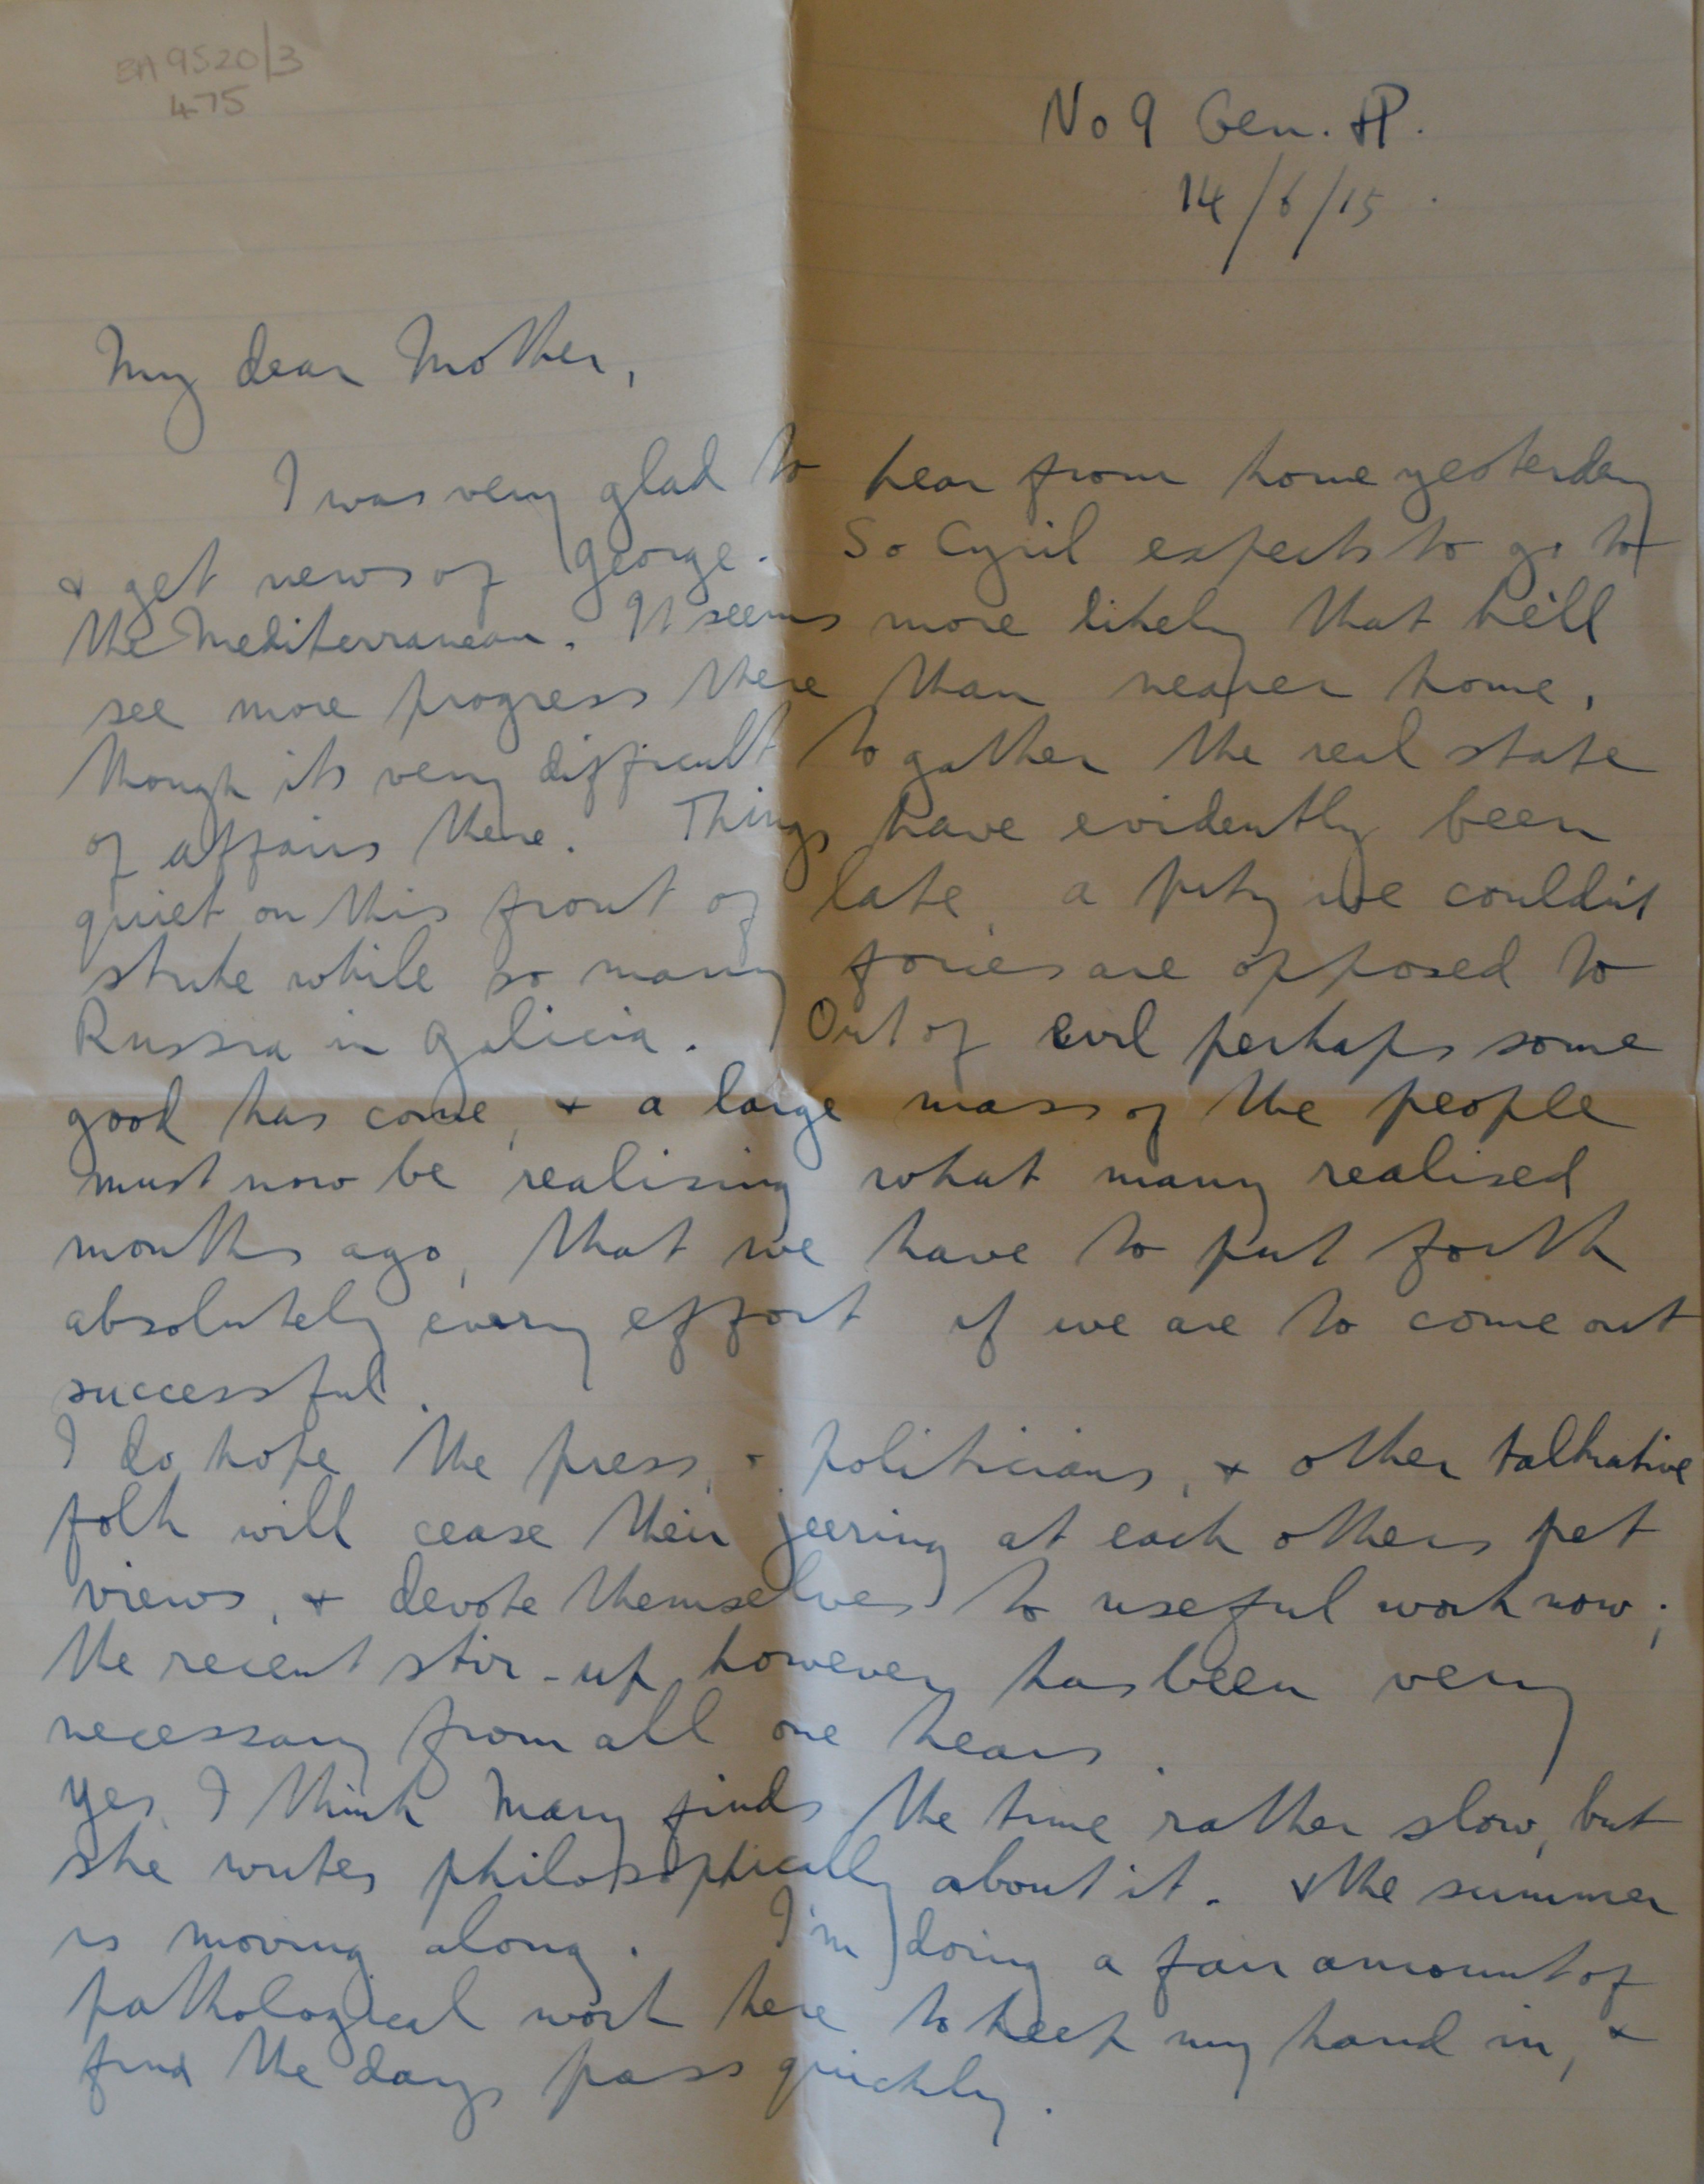 BA 9520/3
475
No 9 Gen. H.
14/6/15.
My dear Mother,
I was very glad to hear from home yesterday
& get news of George. So Cyril expects to go to
the Mediterranean. It seems more likely that he'll
see more progress there than nearer home,
though its very difficult to gather the real state
of affairs there. Things have evidently been
quiet on this front of late, a pity we couldn't
strike while so many forces are opposed to
Russia in Galicia. Out of evil perhaps some
good has come, & a large mass of the people
must now be realising what many realised
months ago, that we have to put forth
absolutely every effort if we are to come out
successful.
I do hope the press, & politicians, & other talkative
folk will cease their jeering at each others pet
views, & devote themselves to useful work now;
the recent stir-up however has been very
necessary from all one hears.
Yes, I think Mary finds the time rather slow, but
she writes philosophically about it. & the summer
is moving along. I'm doing a fair amount of
pathological work here to keep my hand in, &
find the days pass quickly.